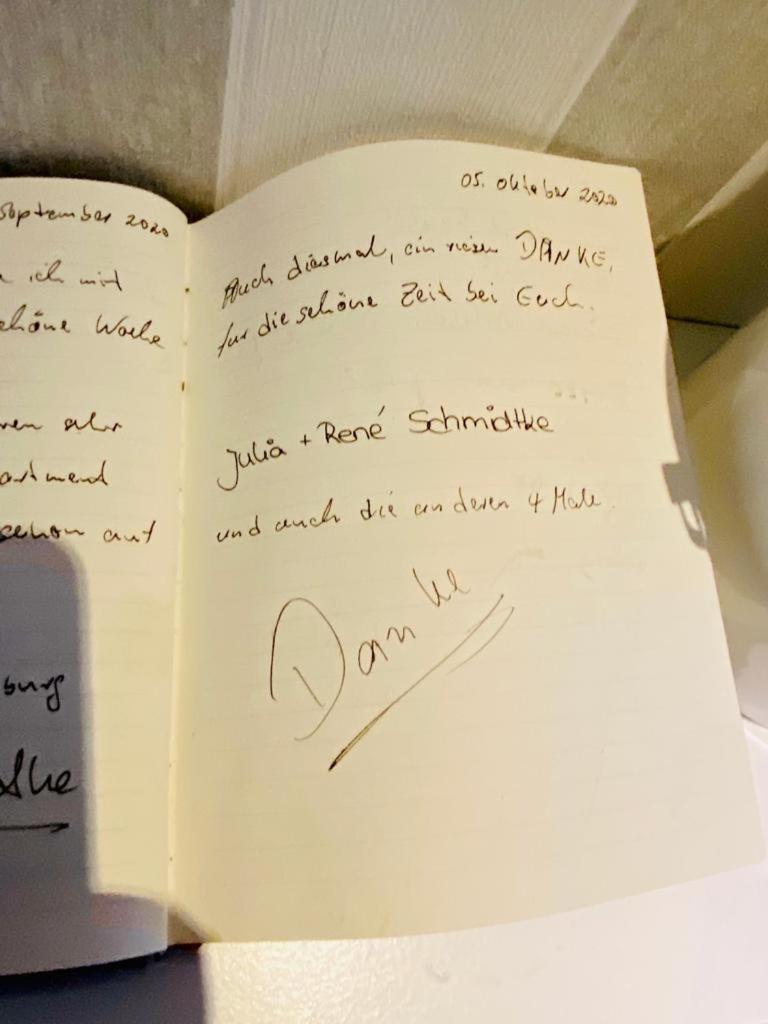 September 2020
ich mit
schöne Woche
sehr
schon auf
burg
05. Oktober 2020
Auch diesmal, ein riesen DANKE,
für die schöne Zeit bei Euch.
Julia + René Schmidtke
und auch die anderen 4 Male.
Danke